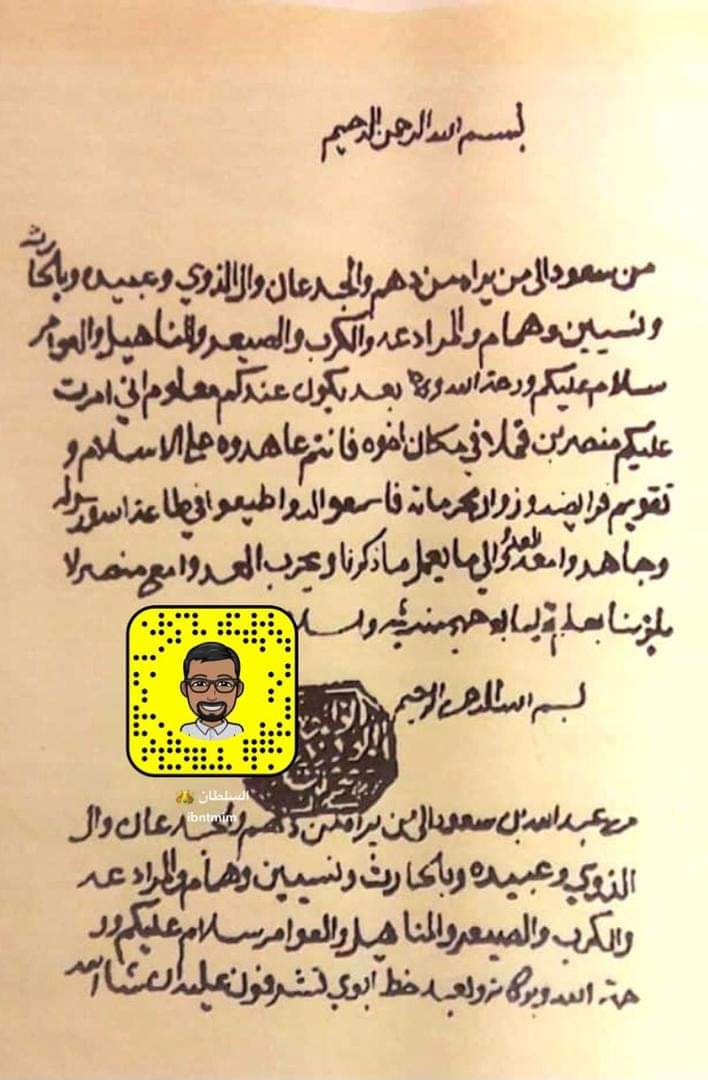 بسم الله الرحمن الرحيم
من سعود الى من يراه من دهم والجدعان وال الذوي وعبيده وبلحارث
ونسيين وهمام والمرادعه والكرب والصيعر والمناهيل والعوامر
سلام عليكم ورحمة الله وبركا بعد يكون عندكم معلوم اني امرت
عليكم منصر بن قملا في مكان اخوه فانتم عاهدوه على الاسلام و
تقويم فرايضه وزوال محرماته فاسمعوا له واطيعوا في طاعة الله ورسوله
وجاهدوا معه العدو والي ما يعمل ما ذكرنا ويحرب العدوا مع منصر لا
يلومنا
بسم الله الرحمن الرحيم
السلطان
ibntmim
من عبدالله بن سعود الى من يراه من دهم والجدعان وال
الذوي وعبيده وبلحارث ونسيين وهمام والمرادعه
والكرب والصيعر والمناهيل والعوامر سلام عليكم ور
حمة الله وبركاته وبعد خط ابوي تشرفون عليه ان شا الله